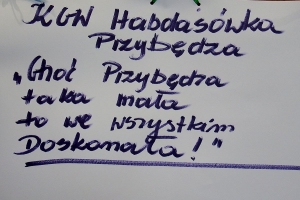 KGW Habdasówka
Przybędza
"Choć Przybędza
taka mała
to we wszystkim
Doskonała!"